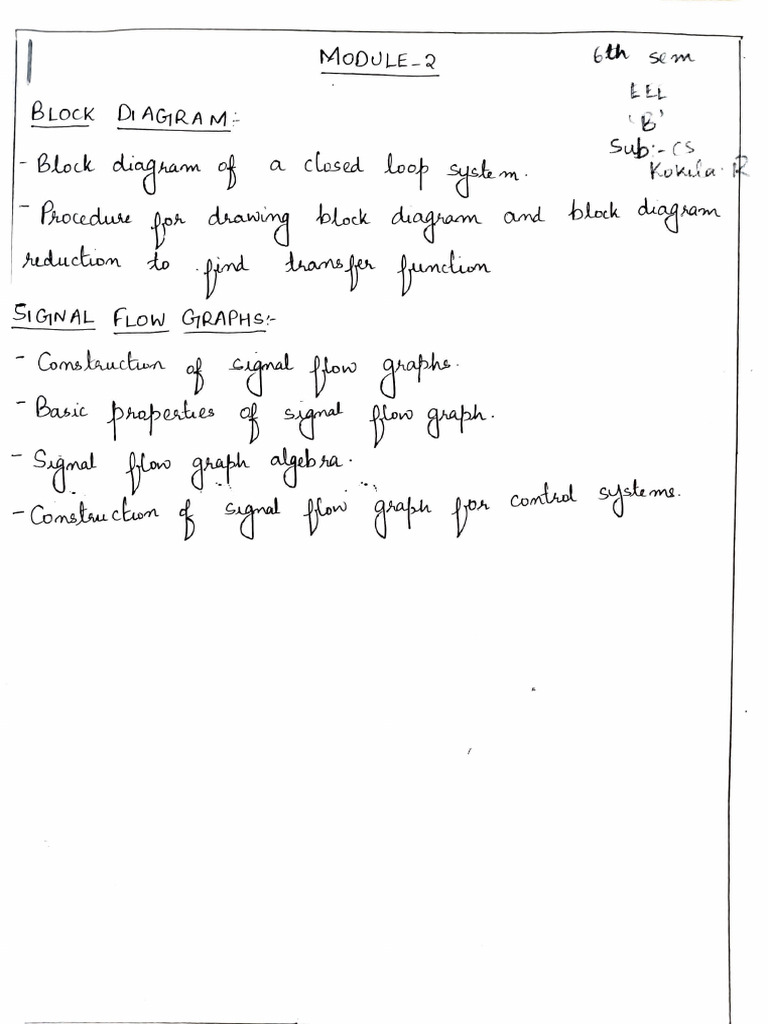 MODULE-2
6th sem
'B'
Sub:- CS
Kokila. R
BLOCK DIAGRAM:-
- Block diagram of a closed loop system.
- Procedure for drawing block diagram and block diagram
reduction to find transfer function
SIGNAL FLOW GRAPHS:-
- Construction of signal flow graphs.
- Basic properties of signal flow graph.
- Signal flow graph algebra.
- Construction of signal flow graph for control systems.